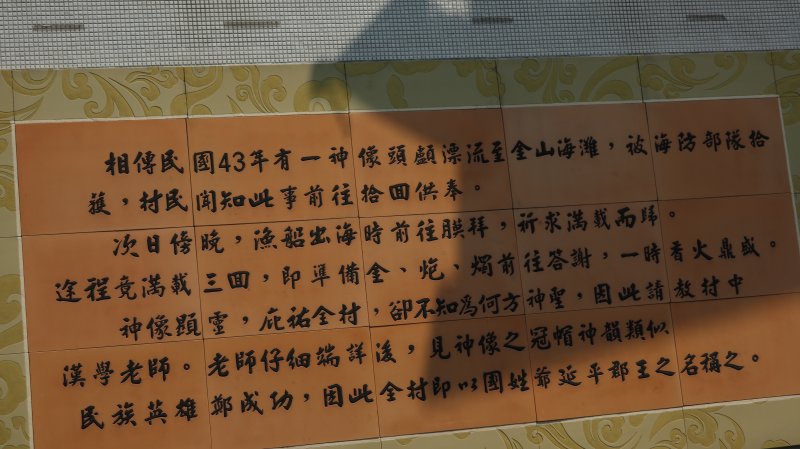 相傳民國43年有一神像頭顱漂流至金山海灘，被海防部隊拾
獲，村民聞知此事前往拾回供奉。
次日傍晚，漁船出海時前往膜拜，祈求滿載而歸。
途程竟滿載三回，即準備金、炮、燭前往答謝，一時香火鼎盛。
神像顯靈，庇祐全村，卻不知為何方神聖，因此請教村中
漢學老師。老師仔細端詳後，見神像之冠帽神韻類似
民族英雄鄭成功，因此全村即以國姓爺延平郡王之名稱之。